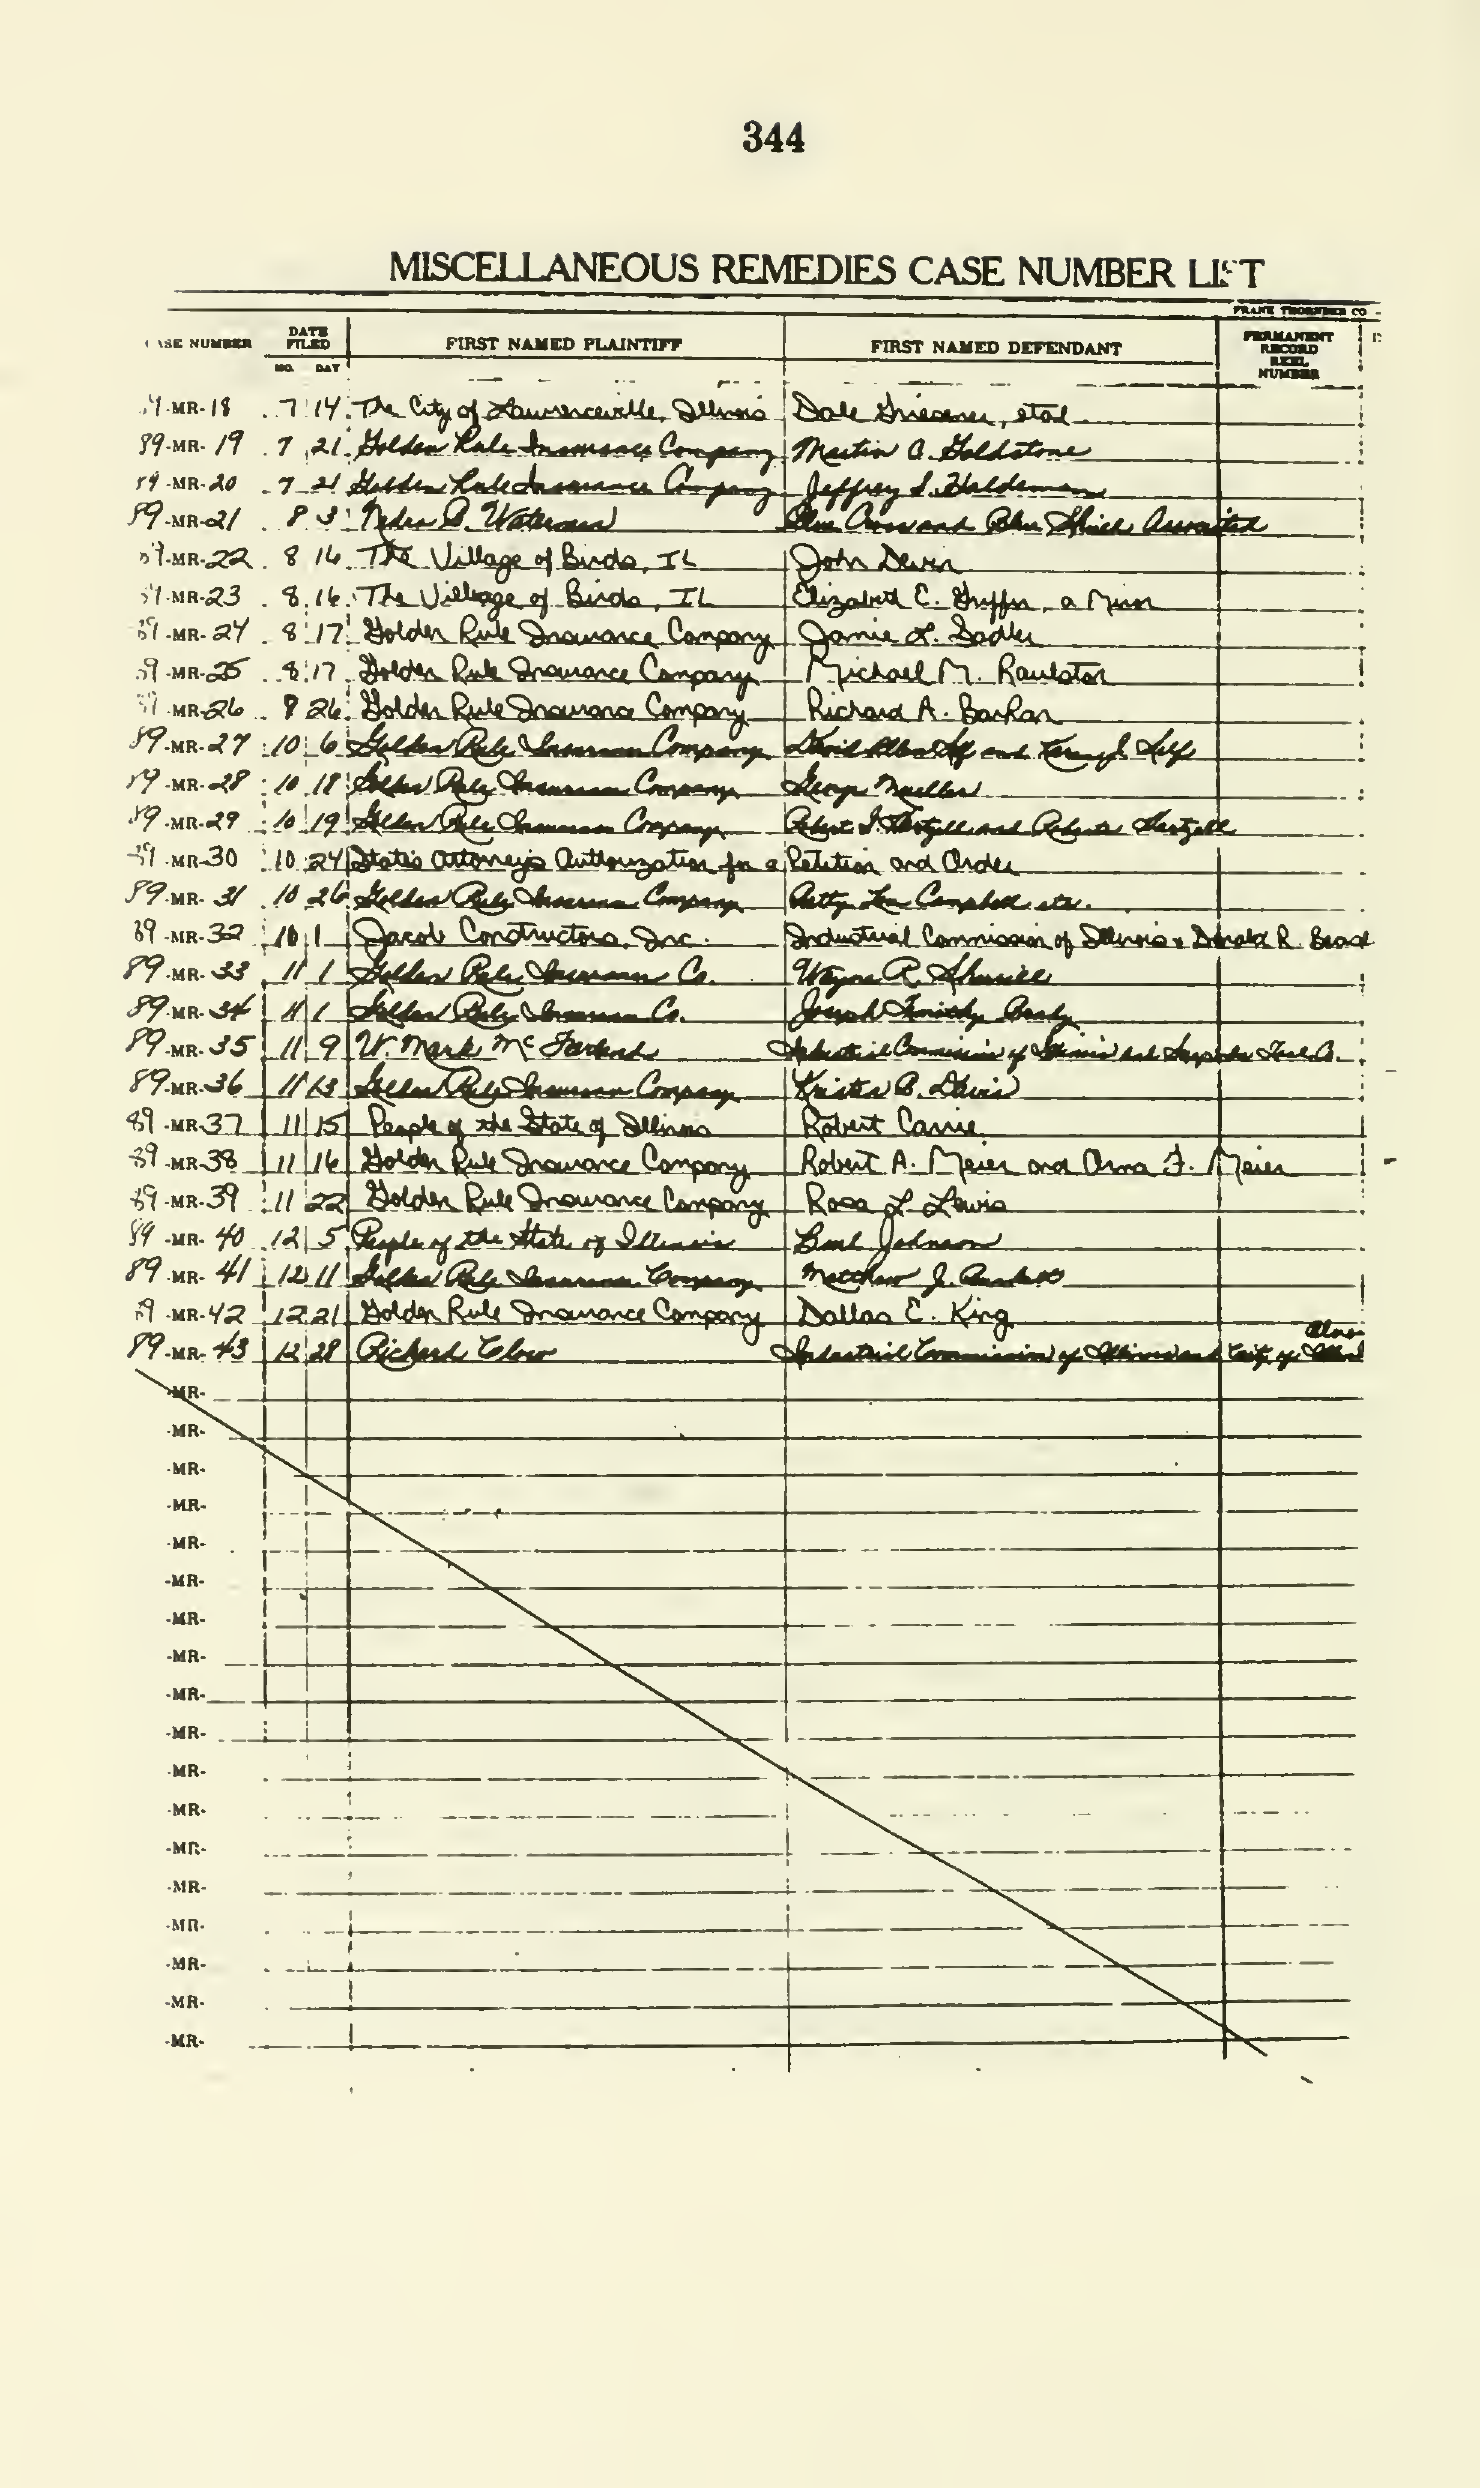 344
MISCELLANEOUS REMEDIES CASE NUMBER LIST
FRANK THORNBER CO
CASE NUMBER DATE FILED FIRST NAMED PLAINTIFF FIRST NAMED DEFENDANT PERMANENT RECORD REEL NUMBER
MO. DAY
89-MR-18 7 14 The City of Lawrenceville, Illinois Dale Griesemer, et al
89-MR-19 7 21 Golden Rule Insurance Company Martin A. Goldstone
89-MR-20 7 21 Golden Rule Insurance Company Jeffrey S. Haldeman
89-MR-21 8 3 Nedra B. Blue Cross and Blue Shield Association
89-MR-22 8 16 The Village of Birds, IL John Devin
89-MR-23 8 16 The Village of Birds, IL Elizabeth E. Griffin, a Minor
89-MR-24 8 17 Golden Rule Insurance Company Jamie L. Sadler
89-MR-25 8 17 Golden Rule Insurance Company Michael M. Raulston
89-MR-26 9 26 Golden Rule Insurance Company Richard A. Barkan
89-MR-27 10 6 Golden Rule Insurance Company David Allen Self and Karen J. Self
89-MR-28 10 18 Golden Rule Insurance Company George Mueller
89-MR-29 10 19 Golden Rule Insurance Company Robert J. Hartzell and Roberta Hartzell
89-MR-30 10 24 State's Attorney's Authorization for a Petition and Order
89-MR-31 10 26 Golden Rule Insurance Company Betty Lou Campbell etc.
89-MR-32 10 1 Jacob Constructors, Inc. Industrial Commission of Illinois & Donald R.
89-MR-33 11 1 Golden Rule Insurance Co. Wayne R. Sherrill
89-MR-34 11 1 Golden Rule Insurance Co. Joseph Timothy Brady
89-MR-35 11 9 W. Mark McFarland Industrial Commission of Illinois and Co.
89-MR-36 11 13 Golden Rule Insurance Company Krista B. Davis
89-MR-37 11 15 People of the State of Illinois Robert Carrie
89-MR-38 11 16 Golden Rule Insurance Company Robert A. Meier and Orma F. Meier
89-MR-39 11 22 Golden Rule Insurance Company Rosa L. Lewis
89-MR-40 12 5 People of the State of Illinois Johnson
89-MR-41 12 11 Golden Rule Insurance Company Matthew J.
89-MR-42 12 21 Golden Rule Insurance Company Dallas E. King
89-MR-43 12 28 Richard Clow Industrial Commission of Illinois and City of
-MR-
-MR-
-MR-
-MR-
-MR-
-MR-
-MR-
-MR-
-MR-
-MR-
-MR-
-MR-
-MR-
-MR-
-MR-
-MR-
-MR-
-MR-